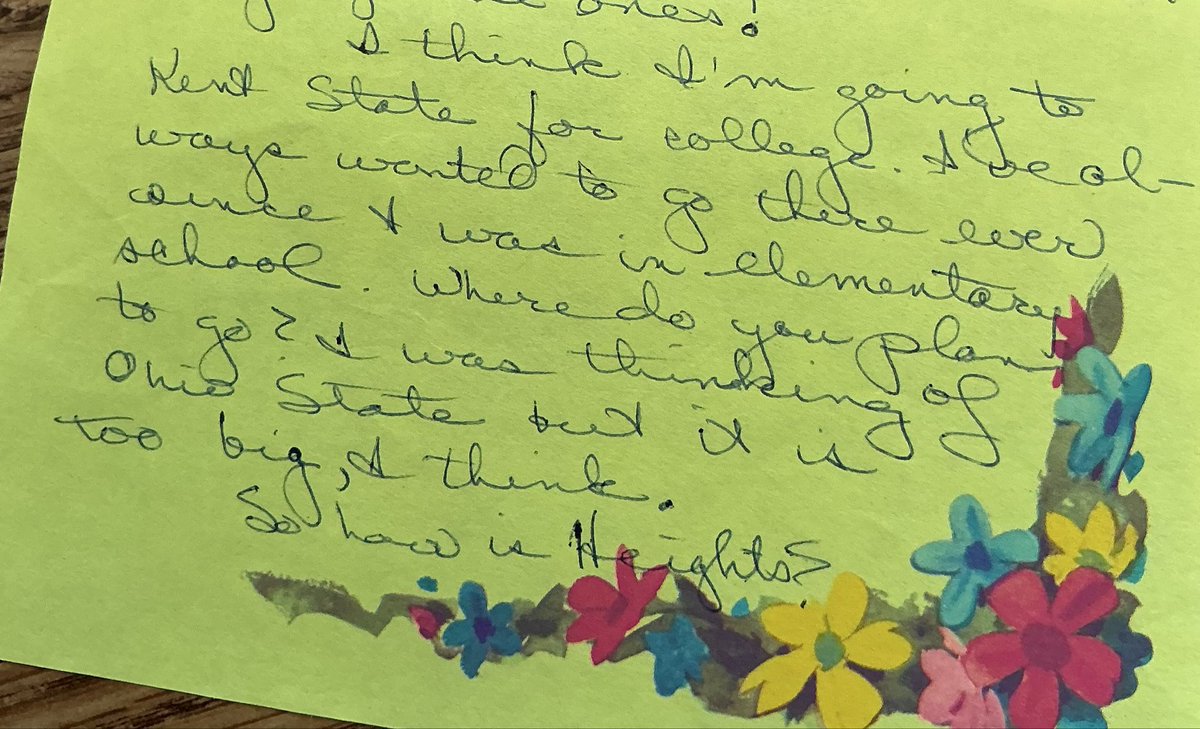 ones!
I think I'm going to
Kent State for college. I've al-
ways wanted to go there ever
since I was in elementary
school. Where do you plan
to go? I was thinking of
Ohio State but it is
too big, I think.
So how is Heights?